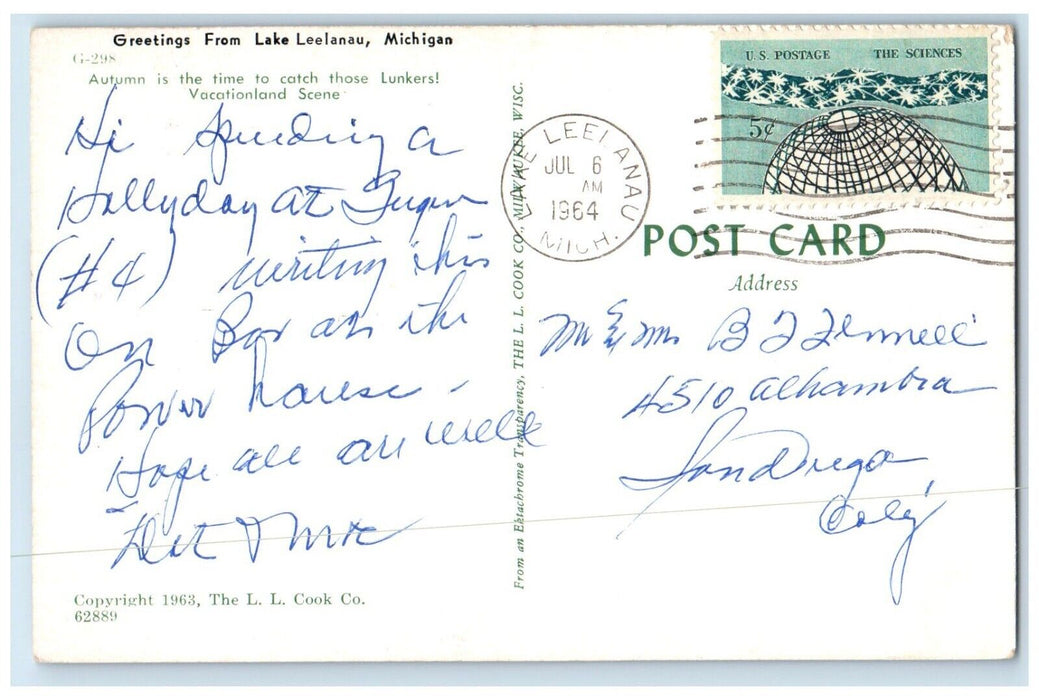 Greetings From Lake Leelanau, Michigan
G-298
Autumn is the time to catch those Lunkers!
Vacationland Scene
Hi Spending a
Hollyday at
(#4) writing this
On Box at the
Power house -
Hope all are well
Dot &
Copyright 1963, The L. L. Cook Co.
62889
From an Ektachrome Transparency, THE L. L. COOK CO., MILWAUKEE, WISC.
LAKE LEELANAU
JUL 6
AM
1964
MICH.
U.S. POSTAGE THE SCIENCES
5¢
POST CARD
Address
Mr & Mrs B
4510 Alhambra
San Diego
Calif